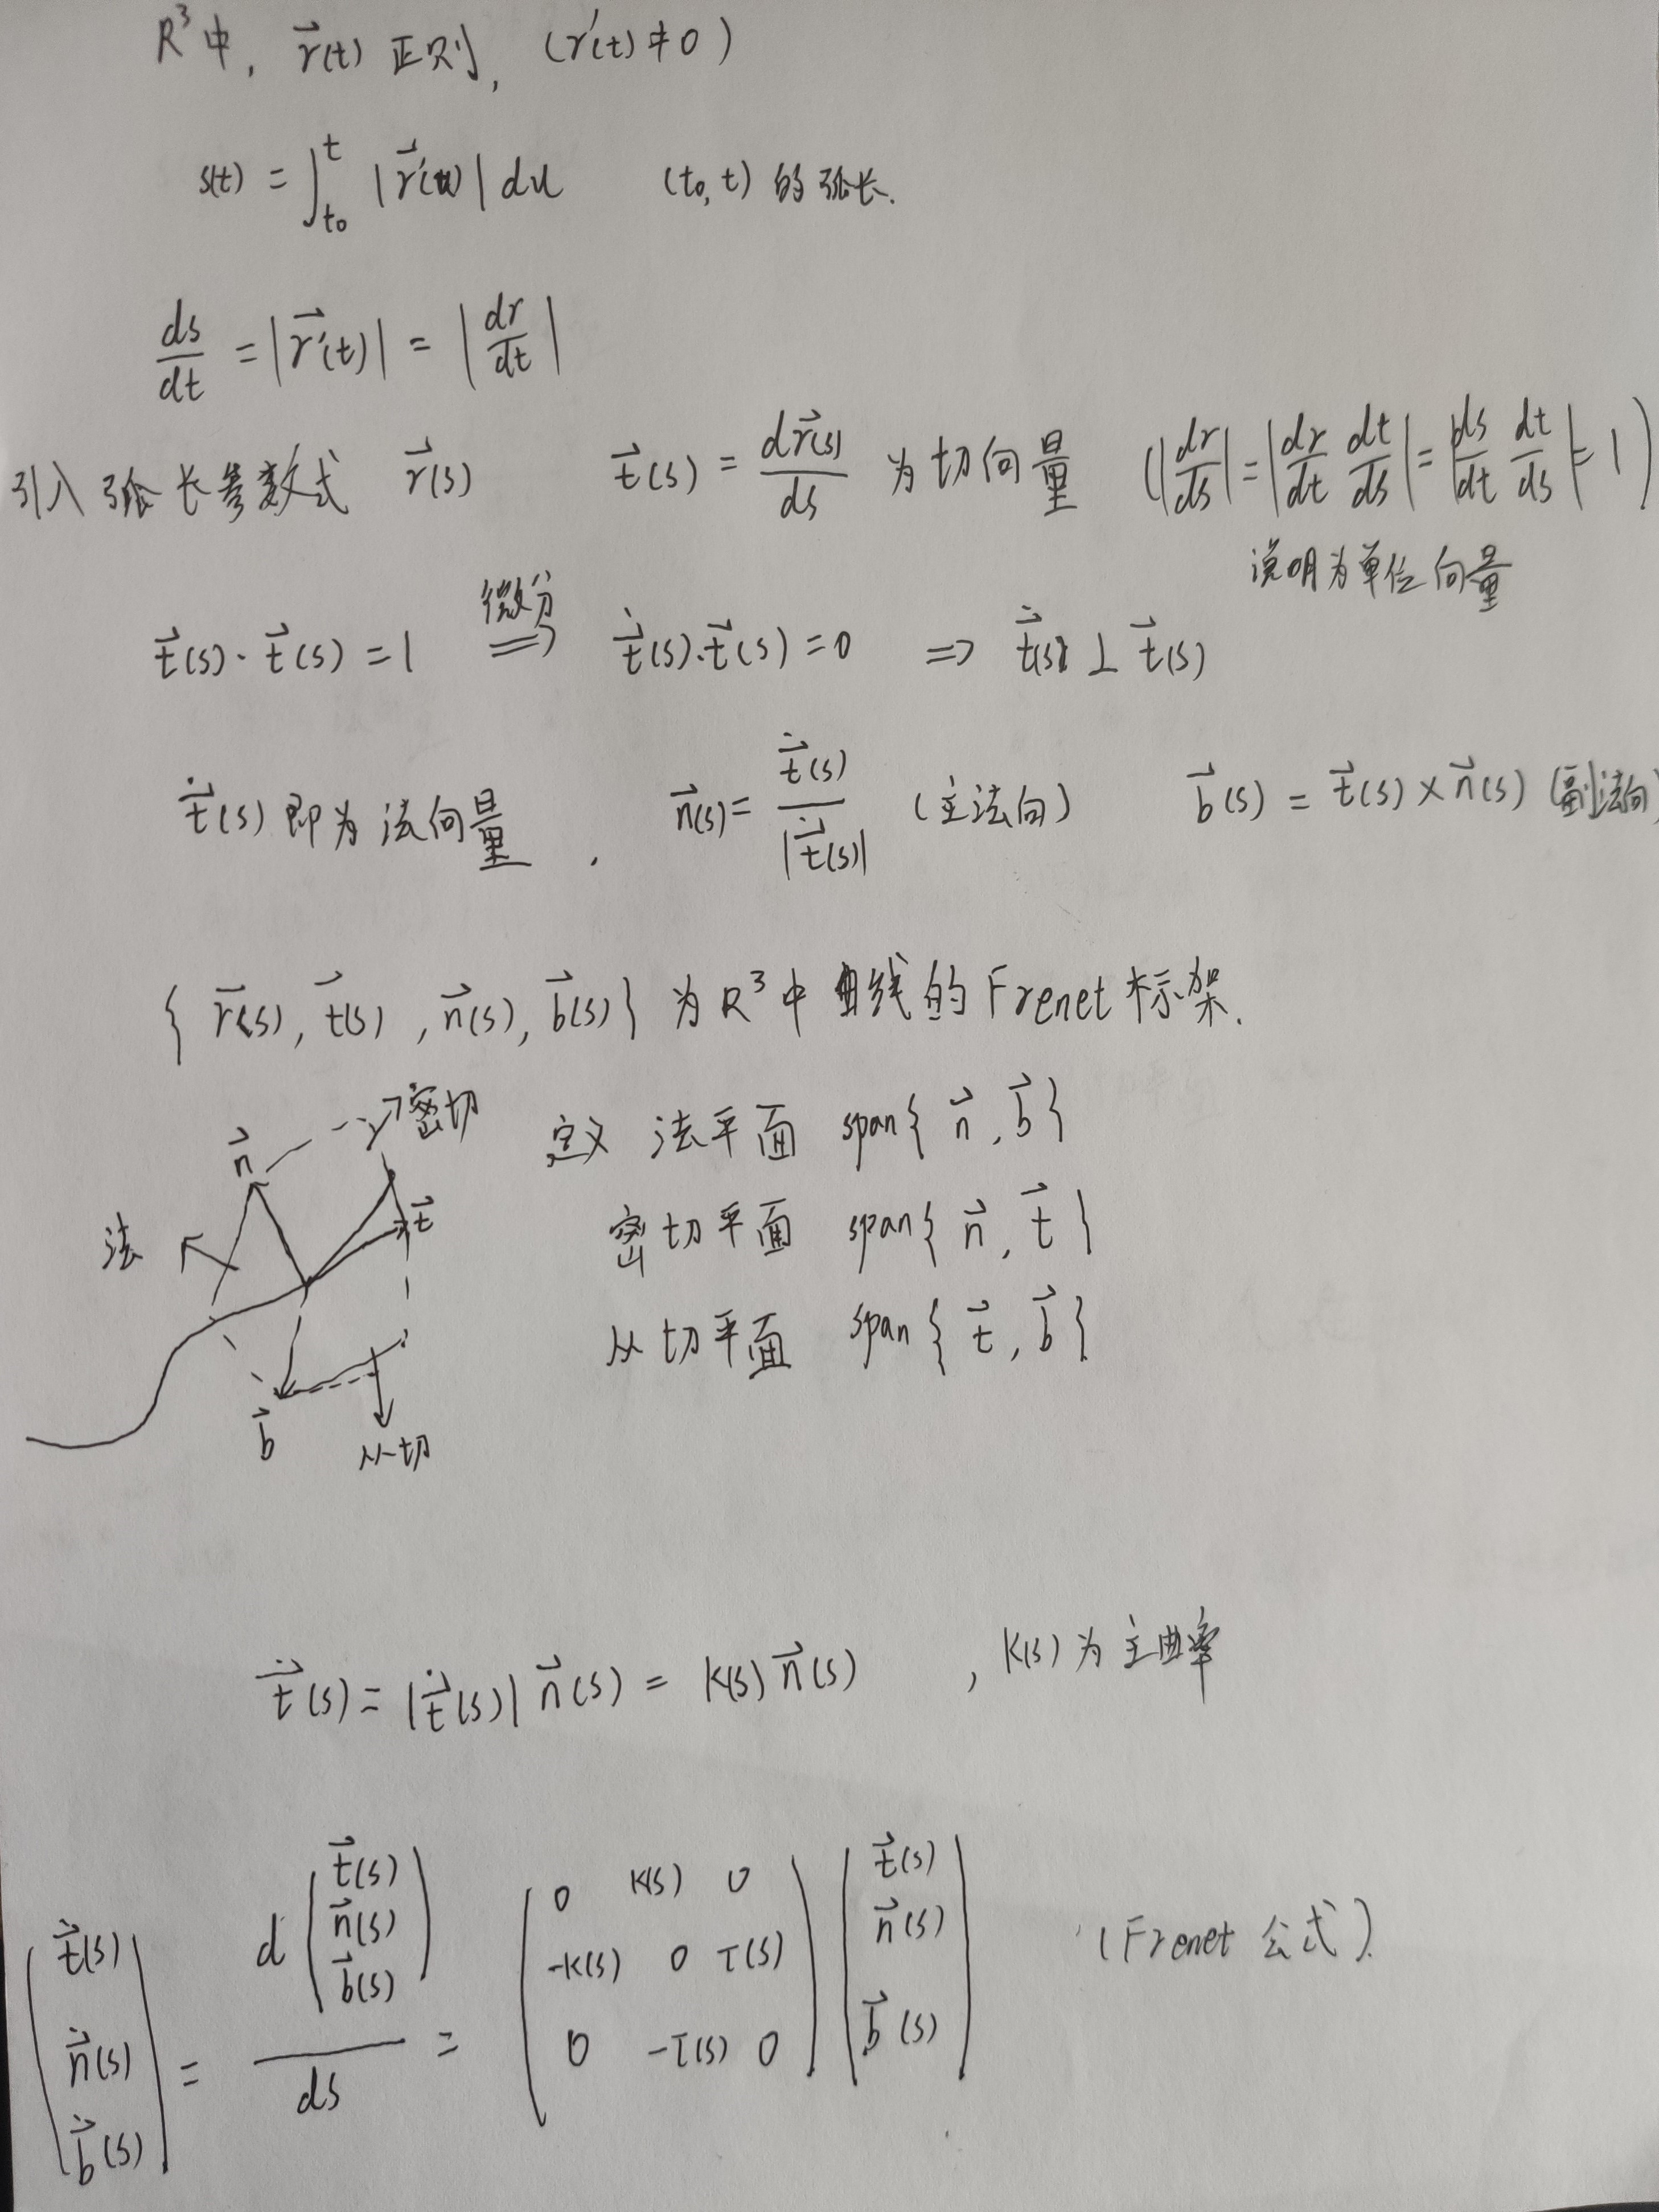 R³中, r⃗(t) 正则, (r′(t)≠0)
s(t) = ∫_{t₀}^{t} |r⃗′(u)| du (t₀, t) 的弧长.
ds/dt = |r⃗′(t)| = |dr/dt|
引入弧长参数式 r⃗(s) t⃗(s) = dr⃗(s)/ds 为切向量 (|dr/ds| = |dr/dt dt/ds| = |ds/dt dt/ds| = 1)
说明为单位向量
t⃗(s)·t⃗(s) = 1 ⟹(微分) ṫ⃗(s)·t⃗(s) = 0 ⟹ ṫ⃗(s) ⊥ t⃗(s)
ṫ⃗(s) 即为法向量, n⃗(s) = ṫ⃗(s)/|ṫ⃗(s)| (主法向) b⃗(s) = t⃗(s) × n⃗(s) (副法向)
{ r⃗(s), t⃗(s), n⃗(s), b⃗(s) } 为 R³中曲线的 Frenet 标架.
n⃗ 密切
法 t⃗
b⃗ 从切
定义 法平面 span{ n⃗, b⃗ }
密切平面 span{ n⃗, t⃗ }
从切平面 span{ t⃗, b⃗ }
ṫ⃗(s) = |ṫ⃗(s)| n⃗(s) = k(s) n⃗(s), k(s) 为主曲率
( ṫ⃗(s) ; ṅ⃗(s) ; ḃ⃗(s) ) = d( t⃗(s) ; n⃗(s) ; b⃗(s) )/ds = ( 0 k(s) 0 ; -k(s) 0 τ(s) ; 0 -τ(s) 0 ) ( t⃗(s) ; n⃗(s) ; b⃗(s) ) (Frenet 公式).